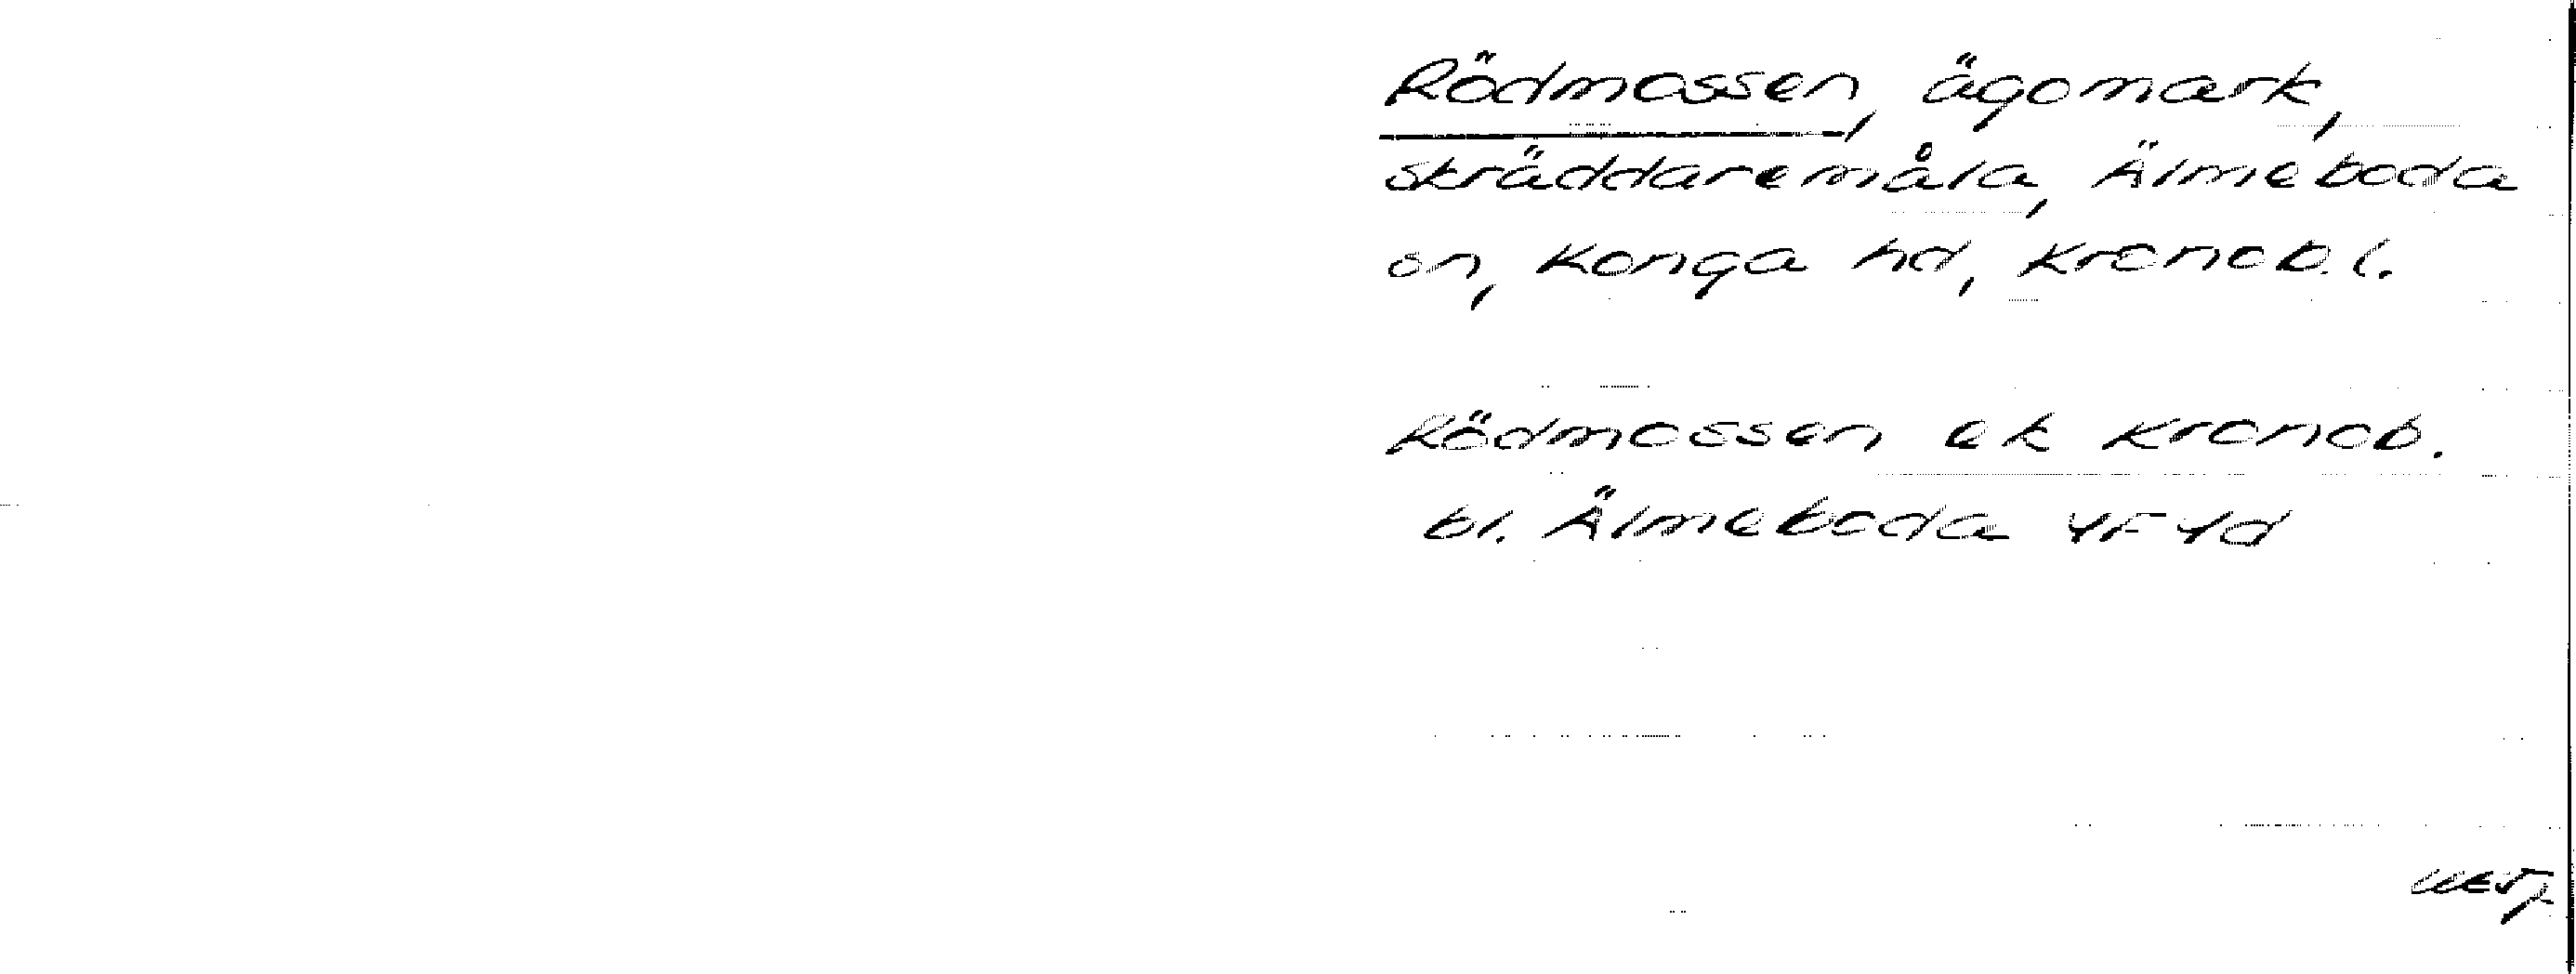 Rödmossen, ägomark,
skräddaremåla, Älmeboda
sn, Konga hd, Kronob.l.
Rödmossen ek Kronob.
bl. Älmeboda 4F4d